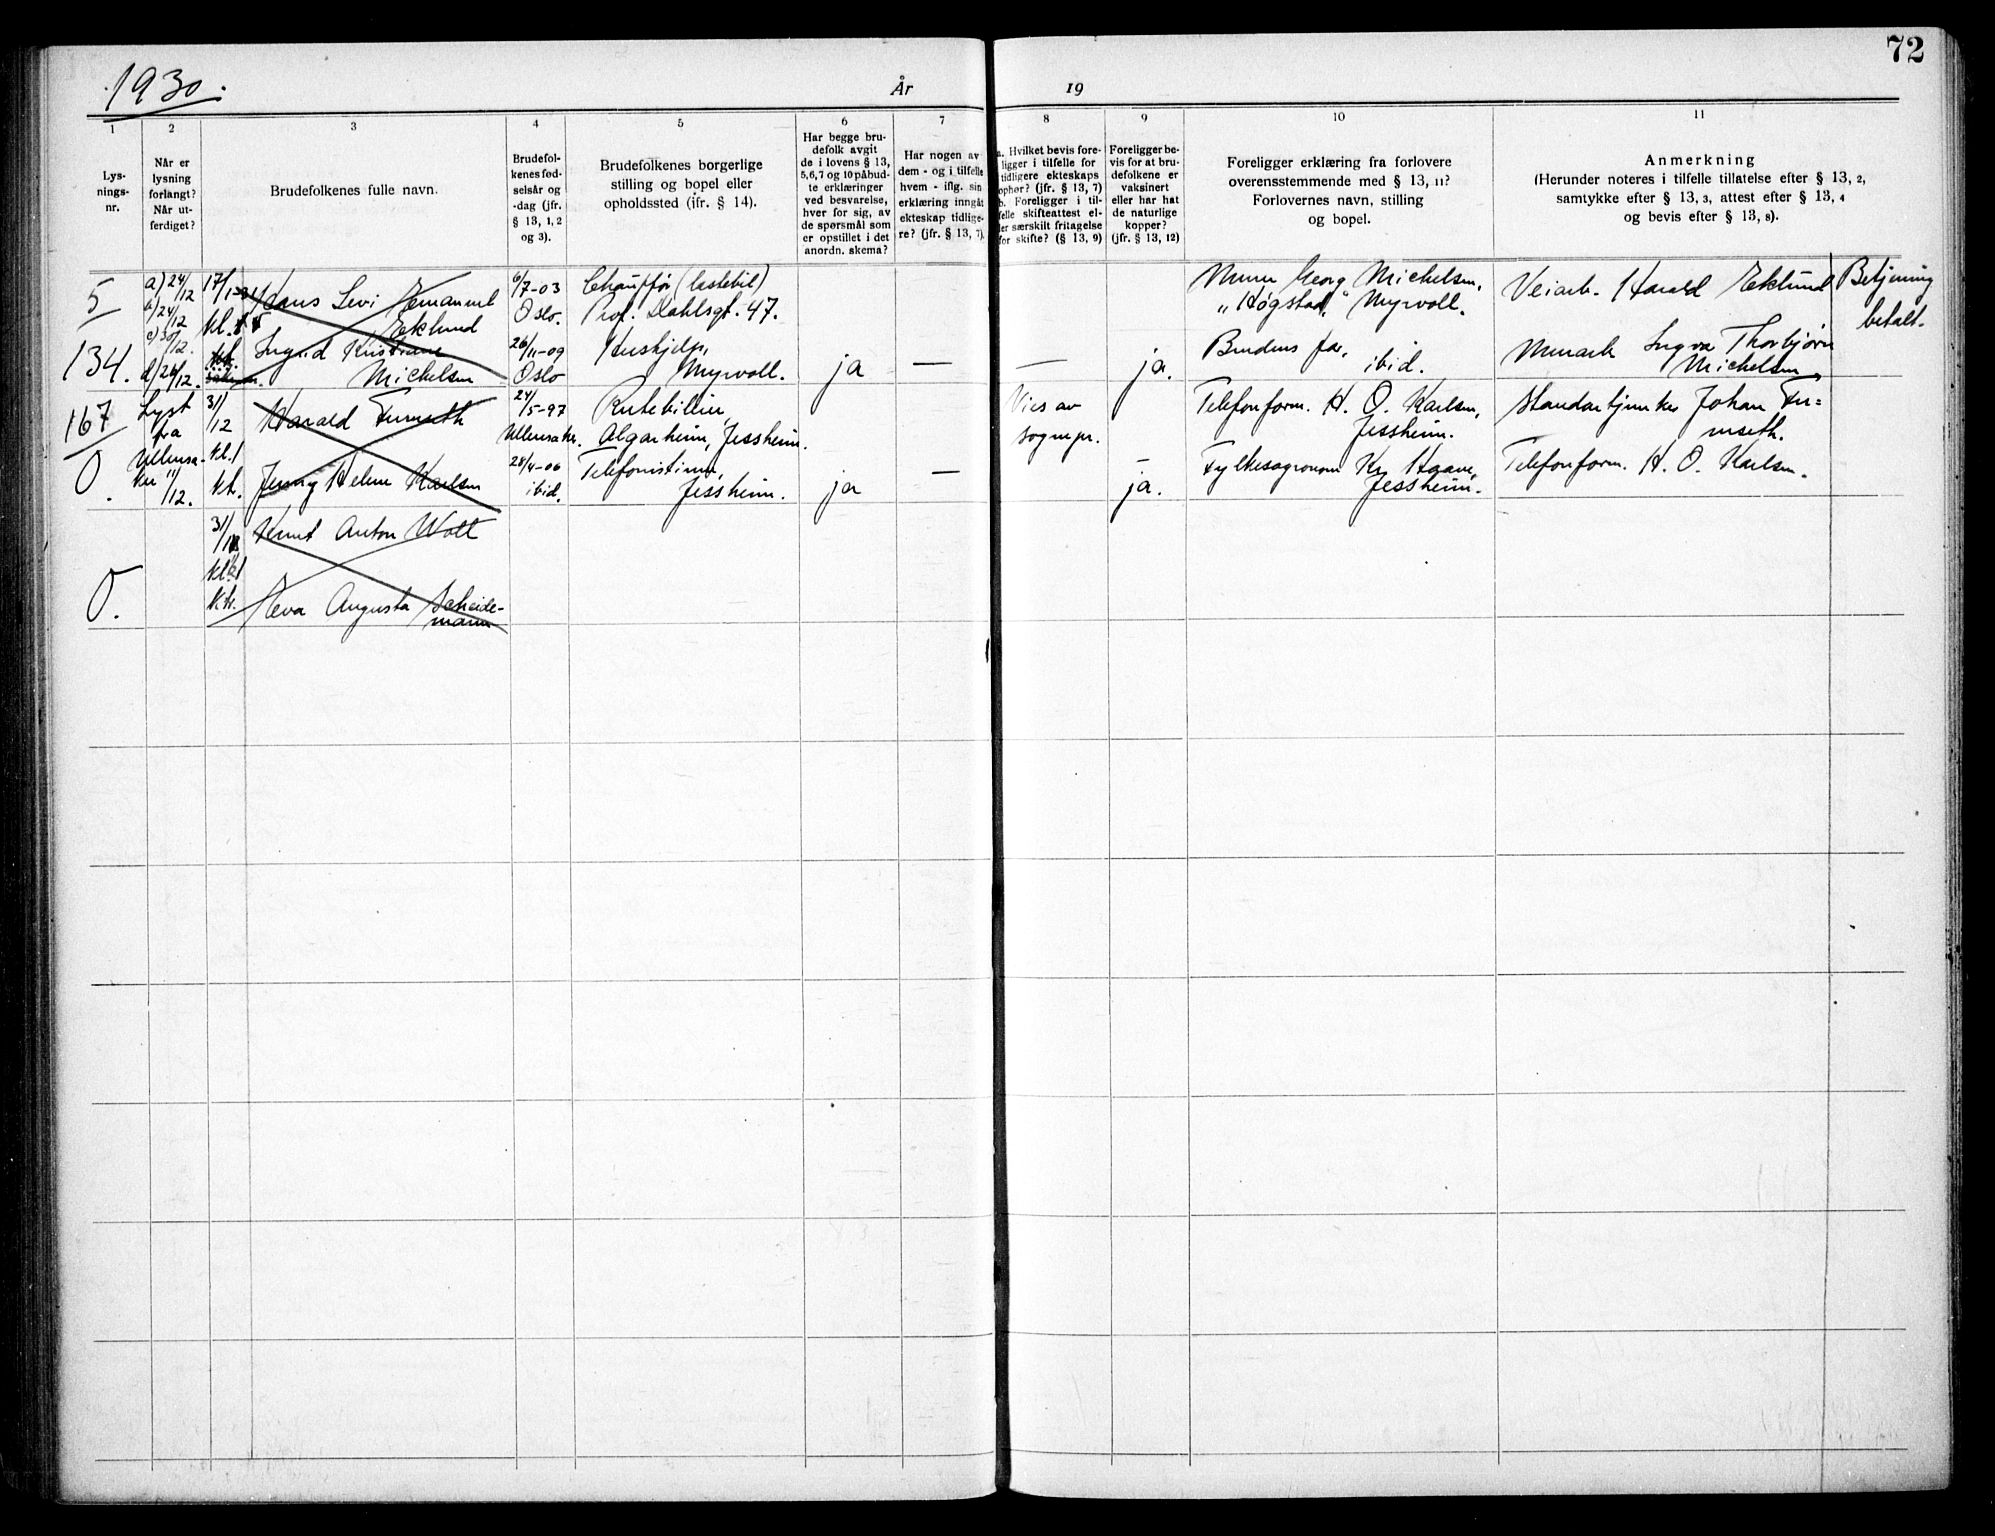 72
1930.
År
19
1
2
3
4
5
6
7
8
9
10
11
Lys-
nings-
nr.
Når er
lysning
forlangt?
Når ut-
ferdiget?
Brudefolkenes fulle navn.
Brudefol-
kenes fød-
selsår og
-dag (jfr.
§ 13, 1, 2
og 3).
Brudefolkenes borgerlige
stilling og bopel eller
opholdssted (jfr. § 14).
Har begge bru-
defolk avgit
de i lovens § 13,
5, 6, 7 og 10 påbud-
te erklæringer
ved besvarelse,
hver for sig, av
de spørsmål som
er opstillet i det
anordn. skema?
Har nogen av
dem - og i tilfelle
hvem - iflg. sin
erklæring inngåt
ekteskap tidlige-
re? (jfr. § 13, 7).
a. Hvilket bevis fore-
ligger i tilfelle for
tidligere ekteskaps
ophør? (jfr. § 13, 7)
b. Foreligger i til-
felle skifteattest el-
ler særskilt fritagelse
for skifte? (§ 13, 9)
Foreligger be-
vis for at bru-
defolkene er
vaksinert
eller har hat
de naturlige
kopper?
(jfr. § 13, 12)
Foreligger erklæring fra forlovere
overensstemmende med § 13, 11?
Forlovernes navn, stilling
og bopel.
Anmerkning
(Herunder noteres i tilfelle tillatelse efter § 13, 2,
samtykke efter § 13, 3, attest efter § 13, 4
og bevis efter § 13, 8).
5
134.
a) 24/12
b) 24/12
c) 30/12.
d) 26/12.
17/1-31
kl.
Hans Levi Emanuel
Eklund
Ingrid Kristiane
Michelsen
6/7-03
Oslo.
26/11-09
Oslo
Chauffør (lastebil)
Prof. Dahlsgt. 47.
Hushjelp,
Myrvoll.
ja
—
—
ja.
Murer Georg Michelsen,
"Høgstad," Myrvoll.
Brudens far,
ibid.
Veiarb. Harald Eklund
Murarb. Ingvar Thorbjørn
Michelsen
Betjening
betalt.
167
0.
Lyst
fra
Ullensa-
ker 11/12.
31/12
kl. 1
kk.
Harald Furuseth
Jenny Helene Karlsen
24/5-97
Ullensaker.
28/4-06
ibid.
Rutebileier,
Algarheim, Jessheim.
Telefonistinne,
Jessheim.
ja
—
Vies av
sognepr.
—
ja.
Telefonform. H. O. Karlsen,
Jessheim.
Fylkesagronom Kr. Haave,
Jessheim.
Standartjunker Johan Fu=
ruseth.
Telefonform. H. O. Karlsen.
0.
31/12
kk.
Knut Anton Wolt
Eva Augusta Scheide-
mann